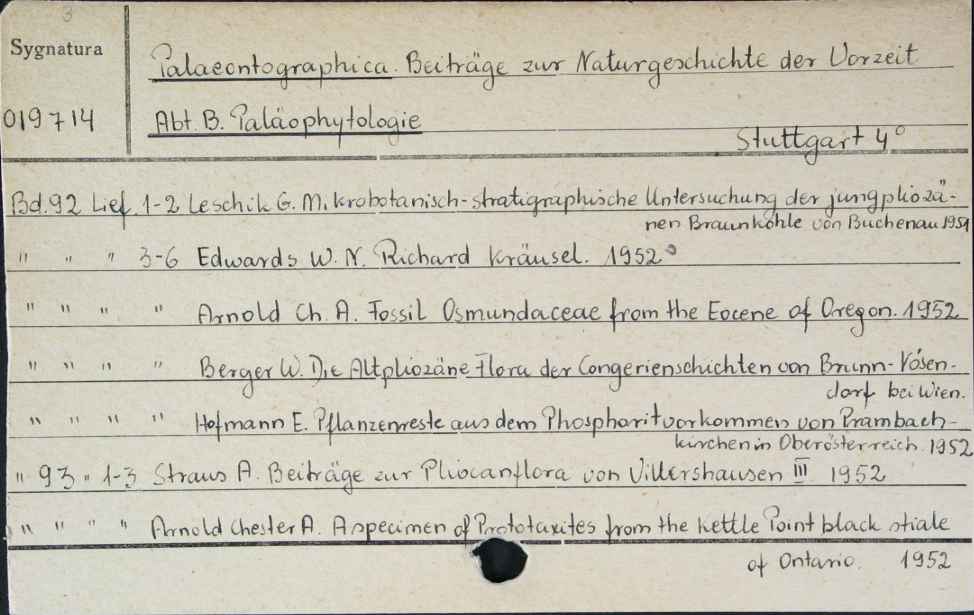 3
Sygnatura
Palaeontographica. Beiträge zur Naturgeschichte der Vorzeit
019714
Abt. B. Paläophytologie
Stuttgart 4°
Bd. 92 Lief. 1-2 Leschik G. Mikrobotanisch-stratigraphische Untersuchung der jungpliozä-
nen Braunkohle von Buchenau 1951
" " " 3-6 Edwards W. N. Richard Kräusel. 1952
" " " " Arnold Ch. A. Fossil Osmundaceae from the Eocene of Oregon. 1952
" " " " Berger W. Die Altpliozäne Flora der Congerienschichten von Brunn-Vösen-
dorf bei Wien.
" " " " Hofmann E. Pflanzenreste aus dem Phosphoritvorkommen von Prambach-
kirchen in Oberösterreich. 1952
" 93 " 1-3 Straus A. Beiträge zur Pliocänflora von Willershausen III 1952
" " " " Arnold Chester A. A specimen of Prototaxites from the Kettle Point black shale
of Ontario. 1952